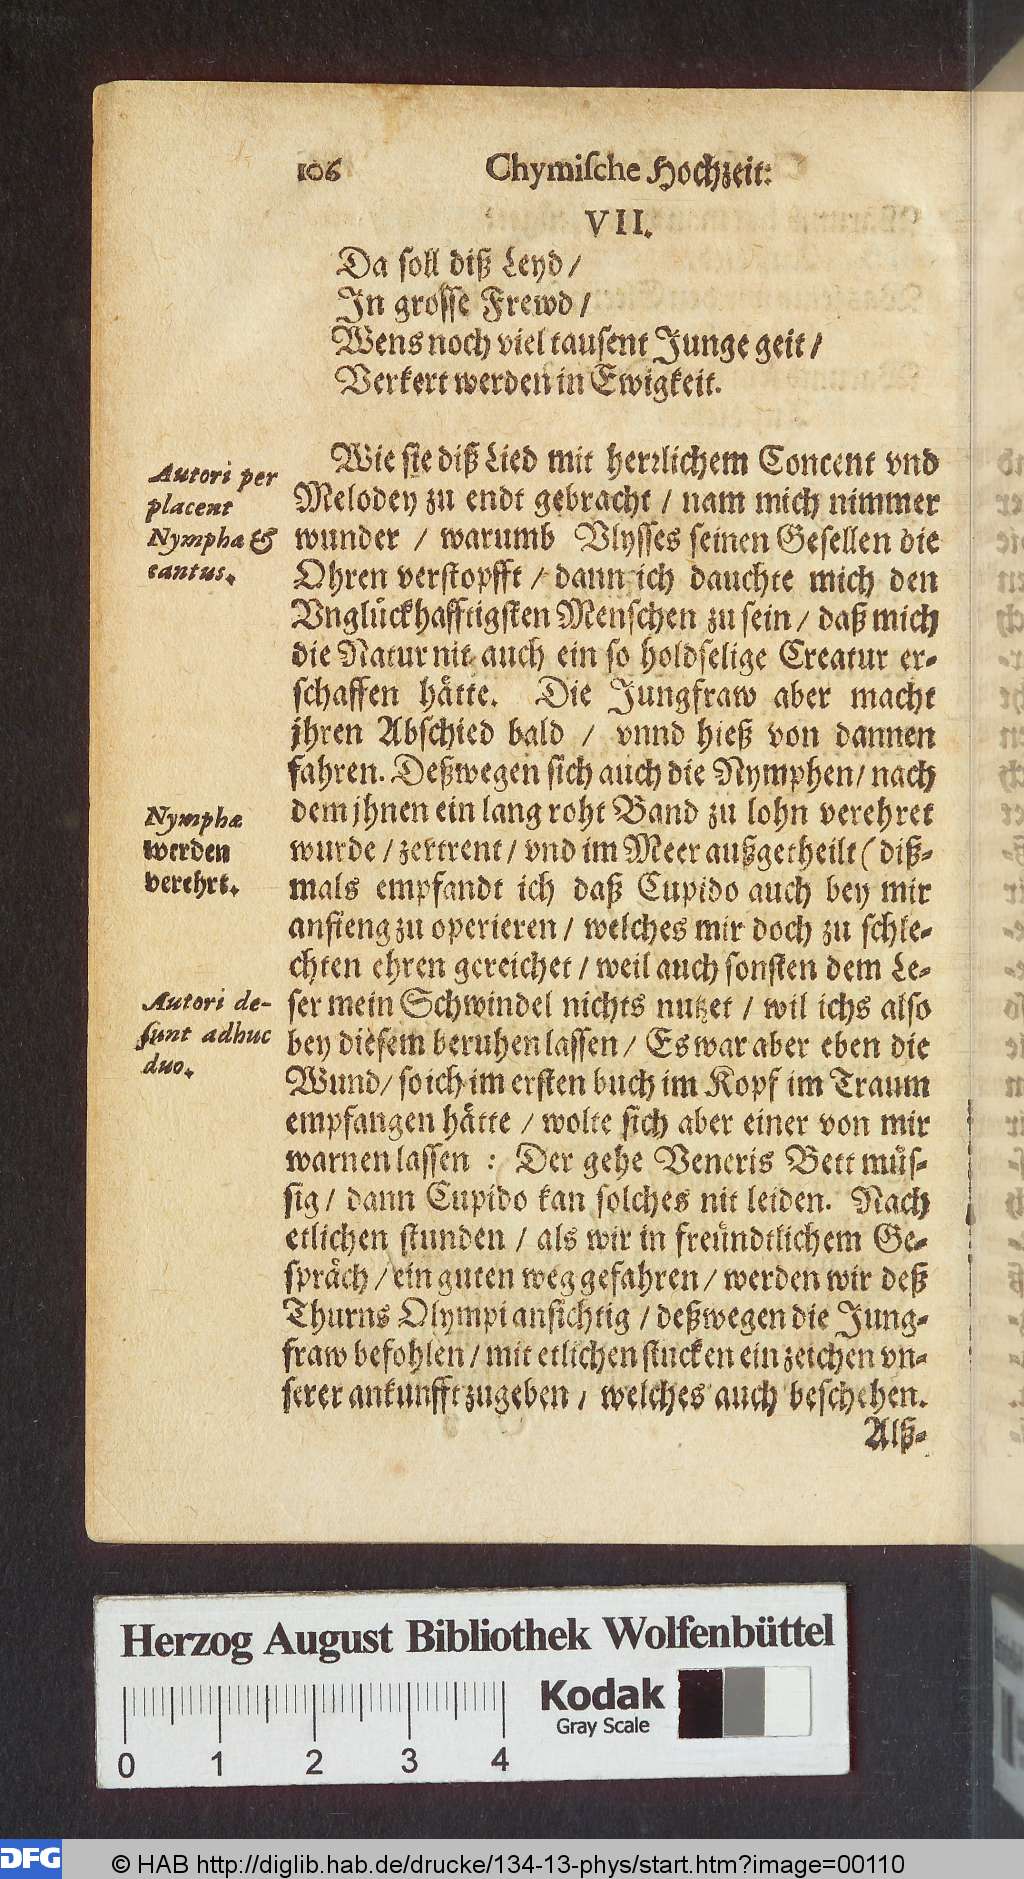 106 Chymische Hochzeit:
VII.
Da soll diß Leyd /
In grosse Frewd /
Wens noch viel tausent Junge geit /
Verkert werden in Ewigkeit.
Autori per
placent
Nymphae &
cantus.
Wie sie diß Lied mit herrlichem Concent vnd
Melodey zu endt gebracht / nam mich nimmer
wunder / warumb Vlysses seinen Gesellen die
Ohren verstopfft / dann ich dauchte mich den
Vnglückhafftigsten Menschen zu sein / daß mich
die Natur nit auch ein so holdselige Creatur er-
schaffen hätte. Die Jungfraw aber macht
jhren Abschied bald / vnnd hieß von dannen
fahren. Deßwegen sich auch die Nymphen / nach
Nymphae
werden
verehrt.
dem jhnen ein lang roht Band zu lohn verehret
wurde / zertrent / vnd im Meer außgetheilt ( diß-
mals empfandt ich daß Cupido auch bey mir
anfieng zu operieren / welches mir doch zu schle-
chten ehren gereichet / weil auch sonsten dem Le-
Autori de-
sunt adhuc
duo.
ser mein Schwindel nichts nutzet / wil ichs also
bey diesem beruhen lassen / Es war aber eben die
Wund / so ich im ersten buch im Kopf im Traum
empfangen hätte / wolte sich aber einer von mir
warnen lassen : Der gehe Veneris Bett müs-
sig / dann Cupido kan solches nit leiden. Nach
etlichen stunden / als wir in freündtlichem Ge-
spräch / ein guten weg gefahren / werden wir deß
Thurns Olympi ansichtig / deßwegen die Jung-
fraw befohlen / mit etlichen stucken ein zeichen vn-
serer ankunfft zugeben / welches auch beschehen.
Alß-
Herzog August Bibliothek Wolfenbüttel
Kodak
Gray Scale
0 1 2 3 4
DFG
© HAB http://diglib.hab.de/drucke/134-13-phys/start.htm?image=00110